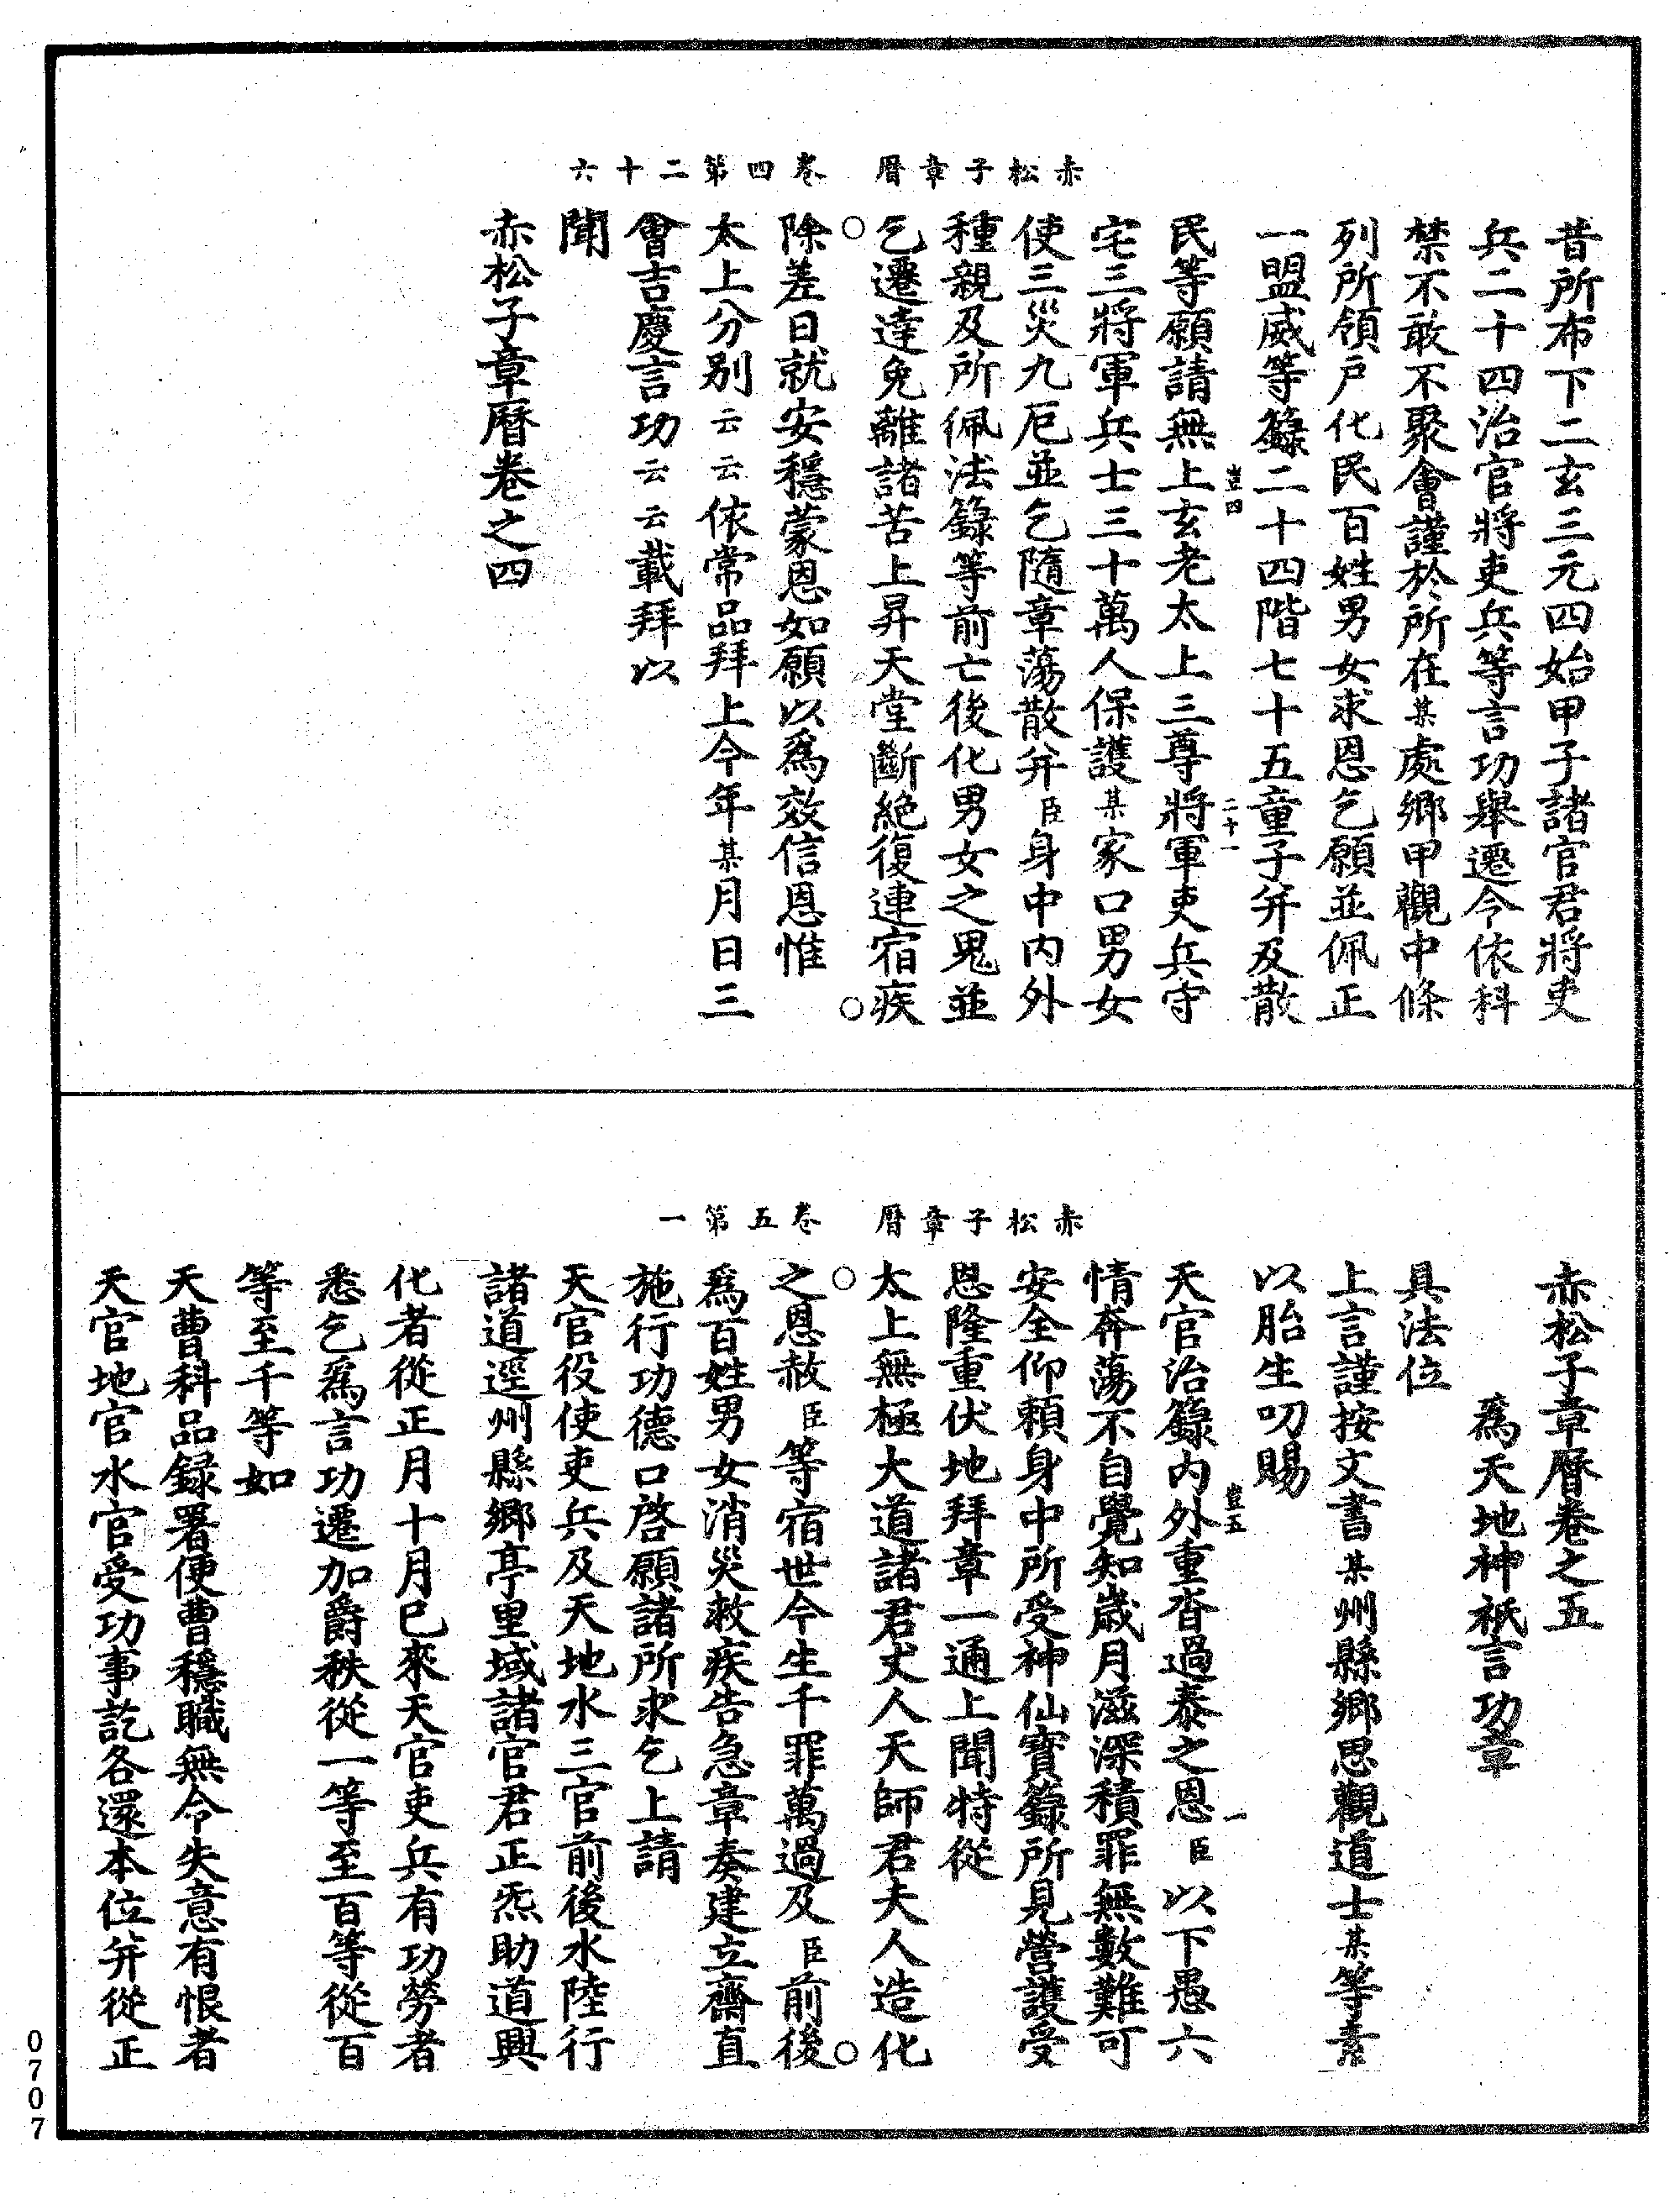 赤松子章曆　卷四第二十六
昔所布下二玄三元四始甲子諸官君將吏
兵二十四治官將吏兵等言功舉遷今依科
禁不敢不聚會謹於所在某處鄉甲觀中條
列所領户化民百姓男女求恩乞願並佩正
一盟威等籙二十四階七十五童子并及散
豈四　二十一
民等願請無上玄老太上三尊將軍吏兵守
宅三將軍兵士三十萬人保護某家口男女
使三災九厄並乞隨章蕩散并臣身中內外
種親及所佩法籙等前亡後化男女之鬼並
乞遷達免離諸苦上昇天堂斷絕復連宿疾
除差日就安穩蒙恩如願以爲效信恩惟
太上分别云云依常品拜上今年某月日三
會吉慶言功云云載拜以
聞
赤松子章曆卷之四
赤松子章曆　卷五第一
赤松子章曆卷之五
爲天地神祇言功章
具法位
上言謹按文書某州縣鄉思觀道士某等素
以胎生叨賜
豈五　一
天官治籙內外重沓過泰之恩臣以下愚六
情奔蕩不自覺知歲月滋深積罪無數難可
安全仰賴身中所受神仙寶籙所見營護受
恩隆重伏地拜章一通上聞特從
太上無極大道諸君丈人天師君夫人造化
之恩赦臣等宿世今生千罪萬過及臣前後
爲百姓男女消災救疾告急章奏建立齋直
施行功德口啓願諸所求乞上請
天官役使吏兵及天地水三官前後水陸行
諸道逕州縣鄉亭里域諸官君正炁助道興
化者從正月十月巳來天官吏兵有功勞者
悉乞爲言功遷加爵秩從一等至百等從百
等至千等如
天曹科品録署便曹穩職無令失意有恨者
天官地官水官受功事訖各還本位并從正
0707